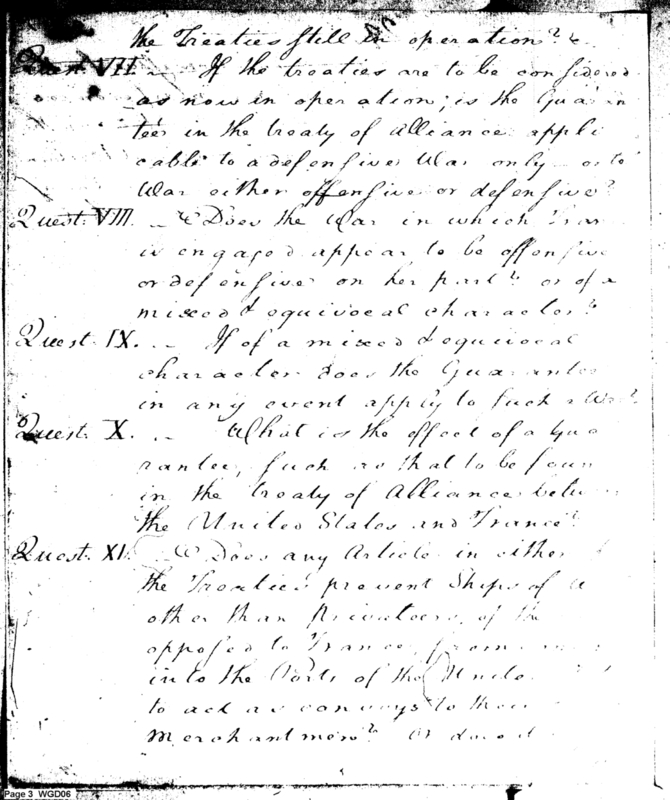 the Treaties still in operation? &
Quest. VII. — If the treaties are to be considered
as now in operation; is the Guaran
tee in the treaty of Alliance appli
cable to a defensive War only or to
War either offensive or defensive?
Quest. VIII. — Does the War in which Fran
is engaged appear to be offensive
or defensive on her part? or of a
mixed & equivocal character?
Quest. IX. — If of a mixed & equivocal
character does the Guarantee
in any event apply to such a War?
Quest. X. — What is the effect of a Gua
rantee, such as that to be foun
in the treaty of Alliance betw
the United States and France?
Quest. XI. — Does any Article in either
the Treaties prevent Ships of
other than Privateers, of the
opposed to France, from
into the Ports of the Unite
to act as convoys to their
Merchantmen? Or does it
Page 3 WGD06